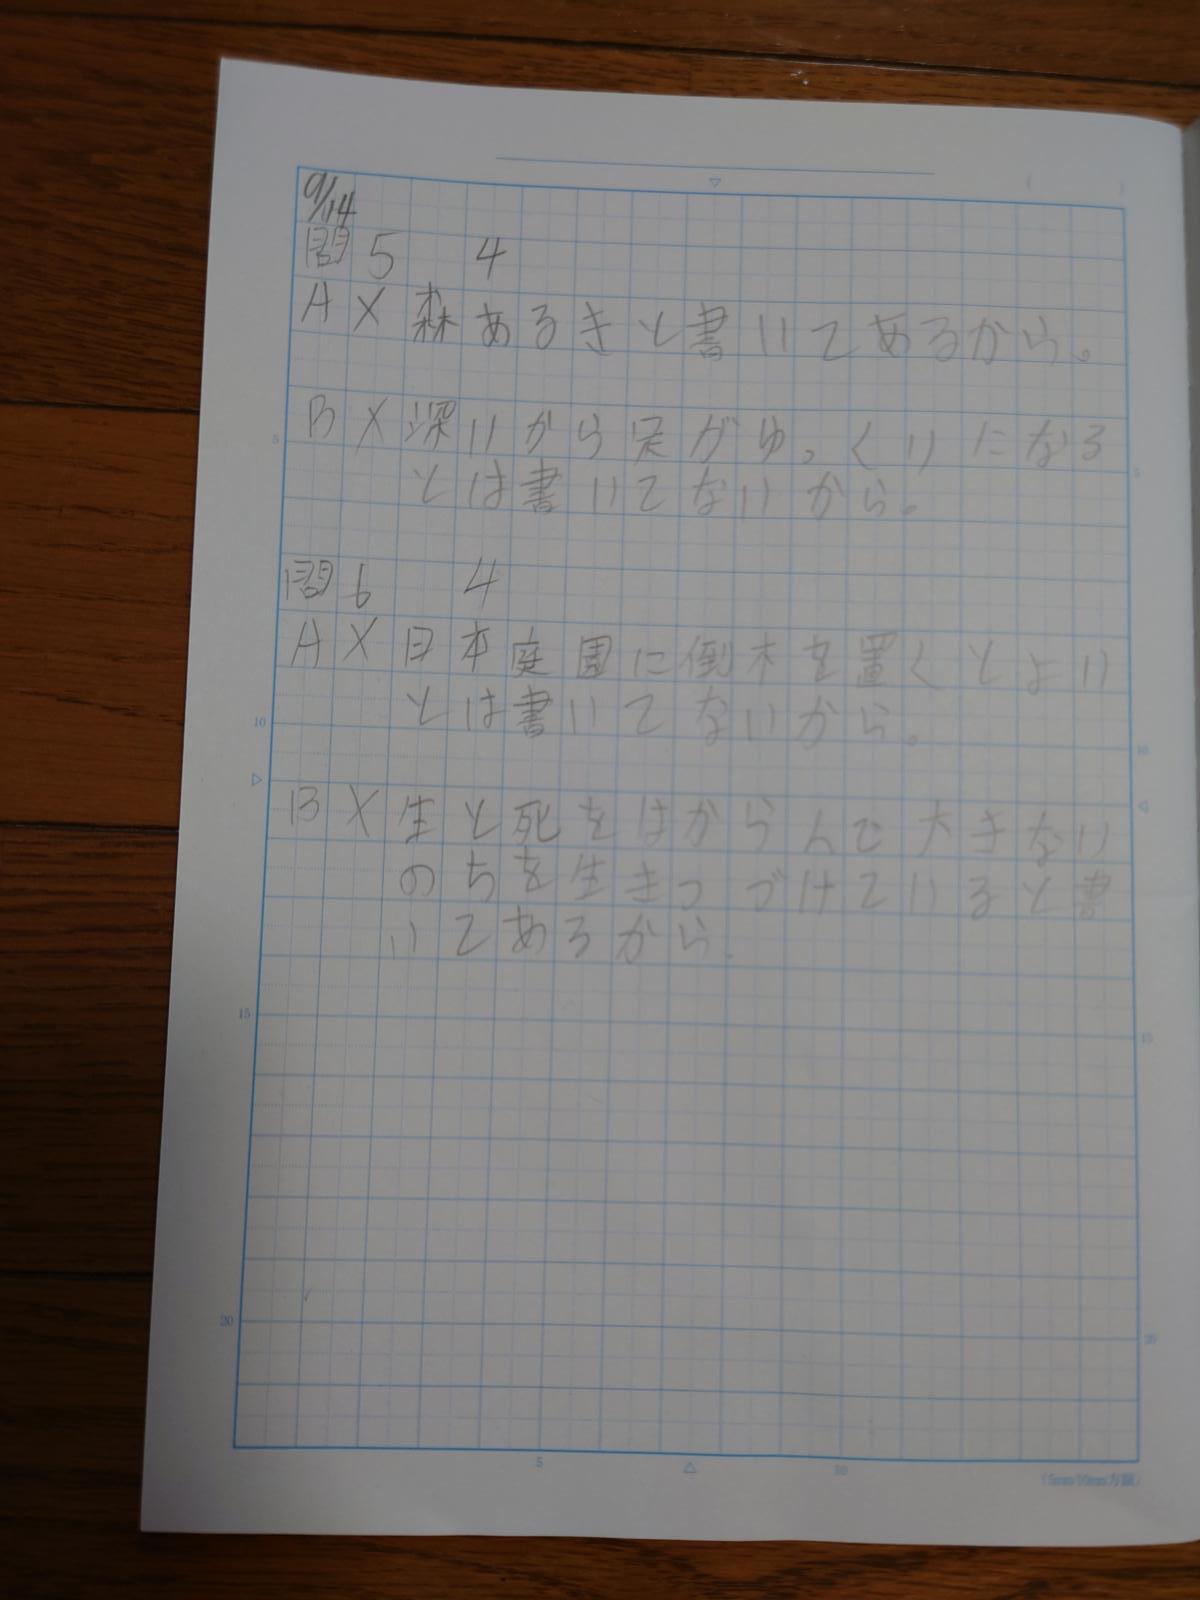 9/14
問5 4
A X 森あるきと書いてあるから。
B X 深いから足がゆっくりになる
とは書いてないから。
問6 4
A X 日本庭園に倒木を置くとよい
とは書いてないから。
B X 生と死をはからんで大きない
のちを生きつづけていると書
いてあるから.
5
10
15
20
5
10
15
20
5
10
(5mm 10mm方眼)